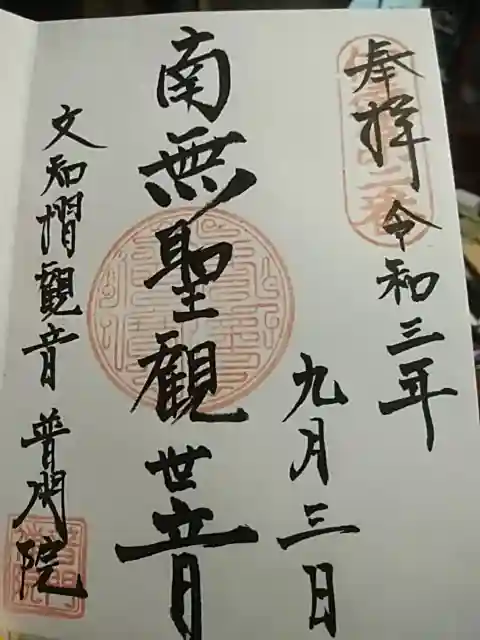 奉拝
令和三年
九月三日
南無聖観世音
文知摺観音 普門院